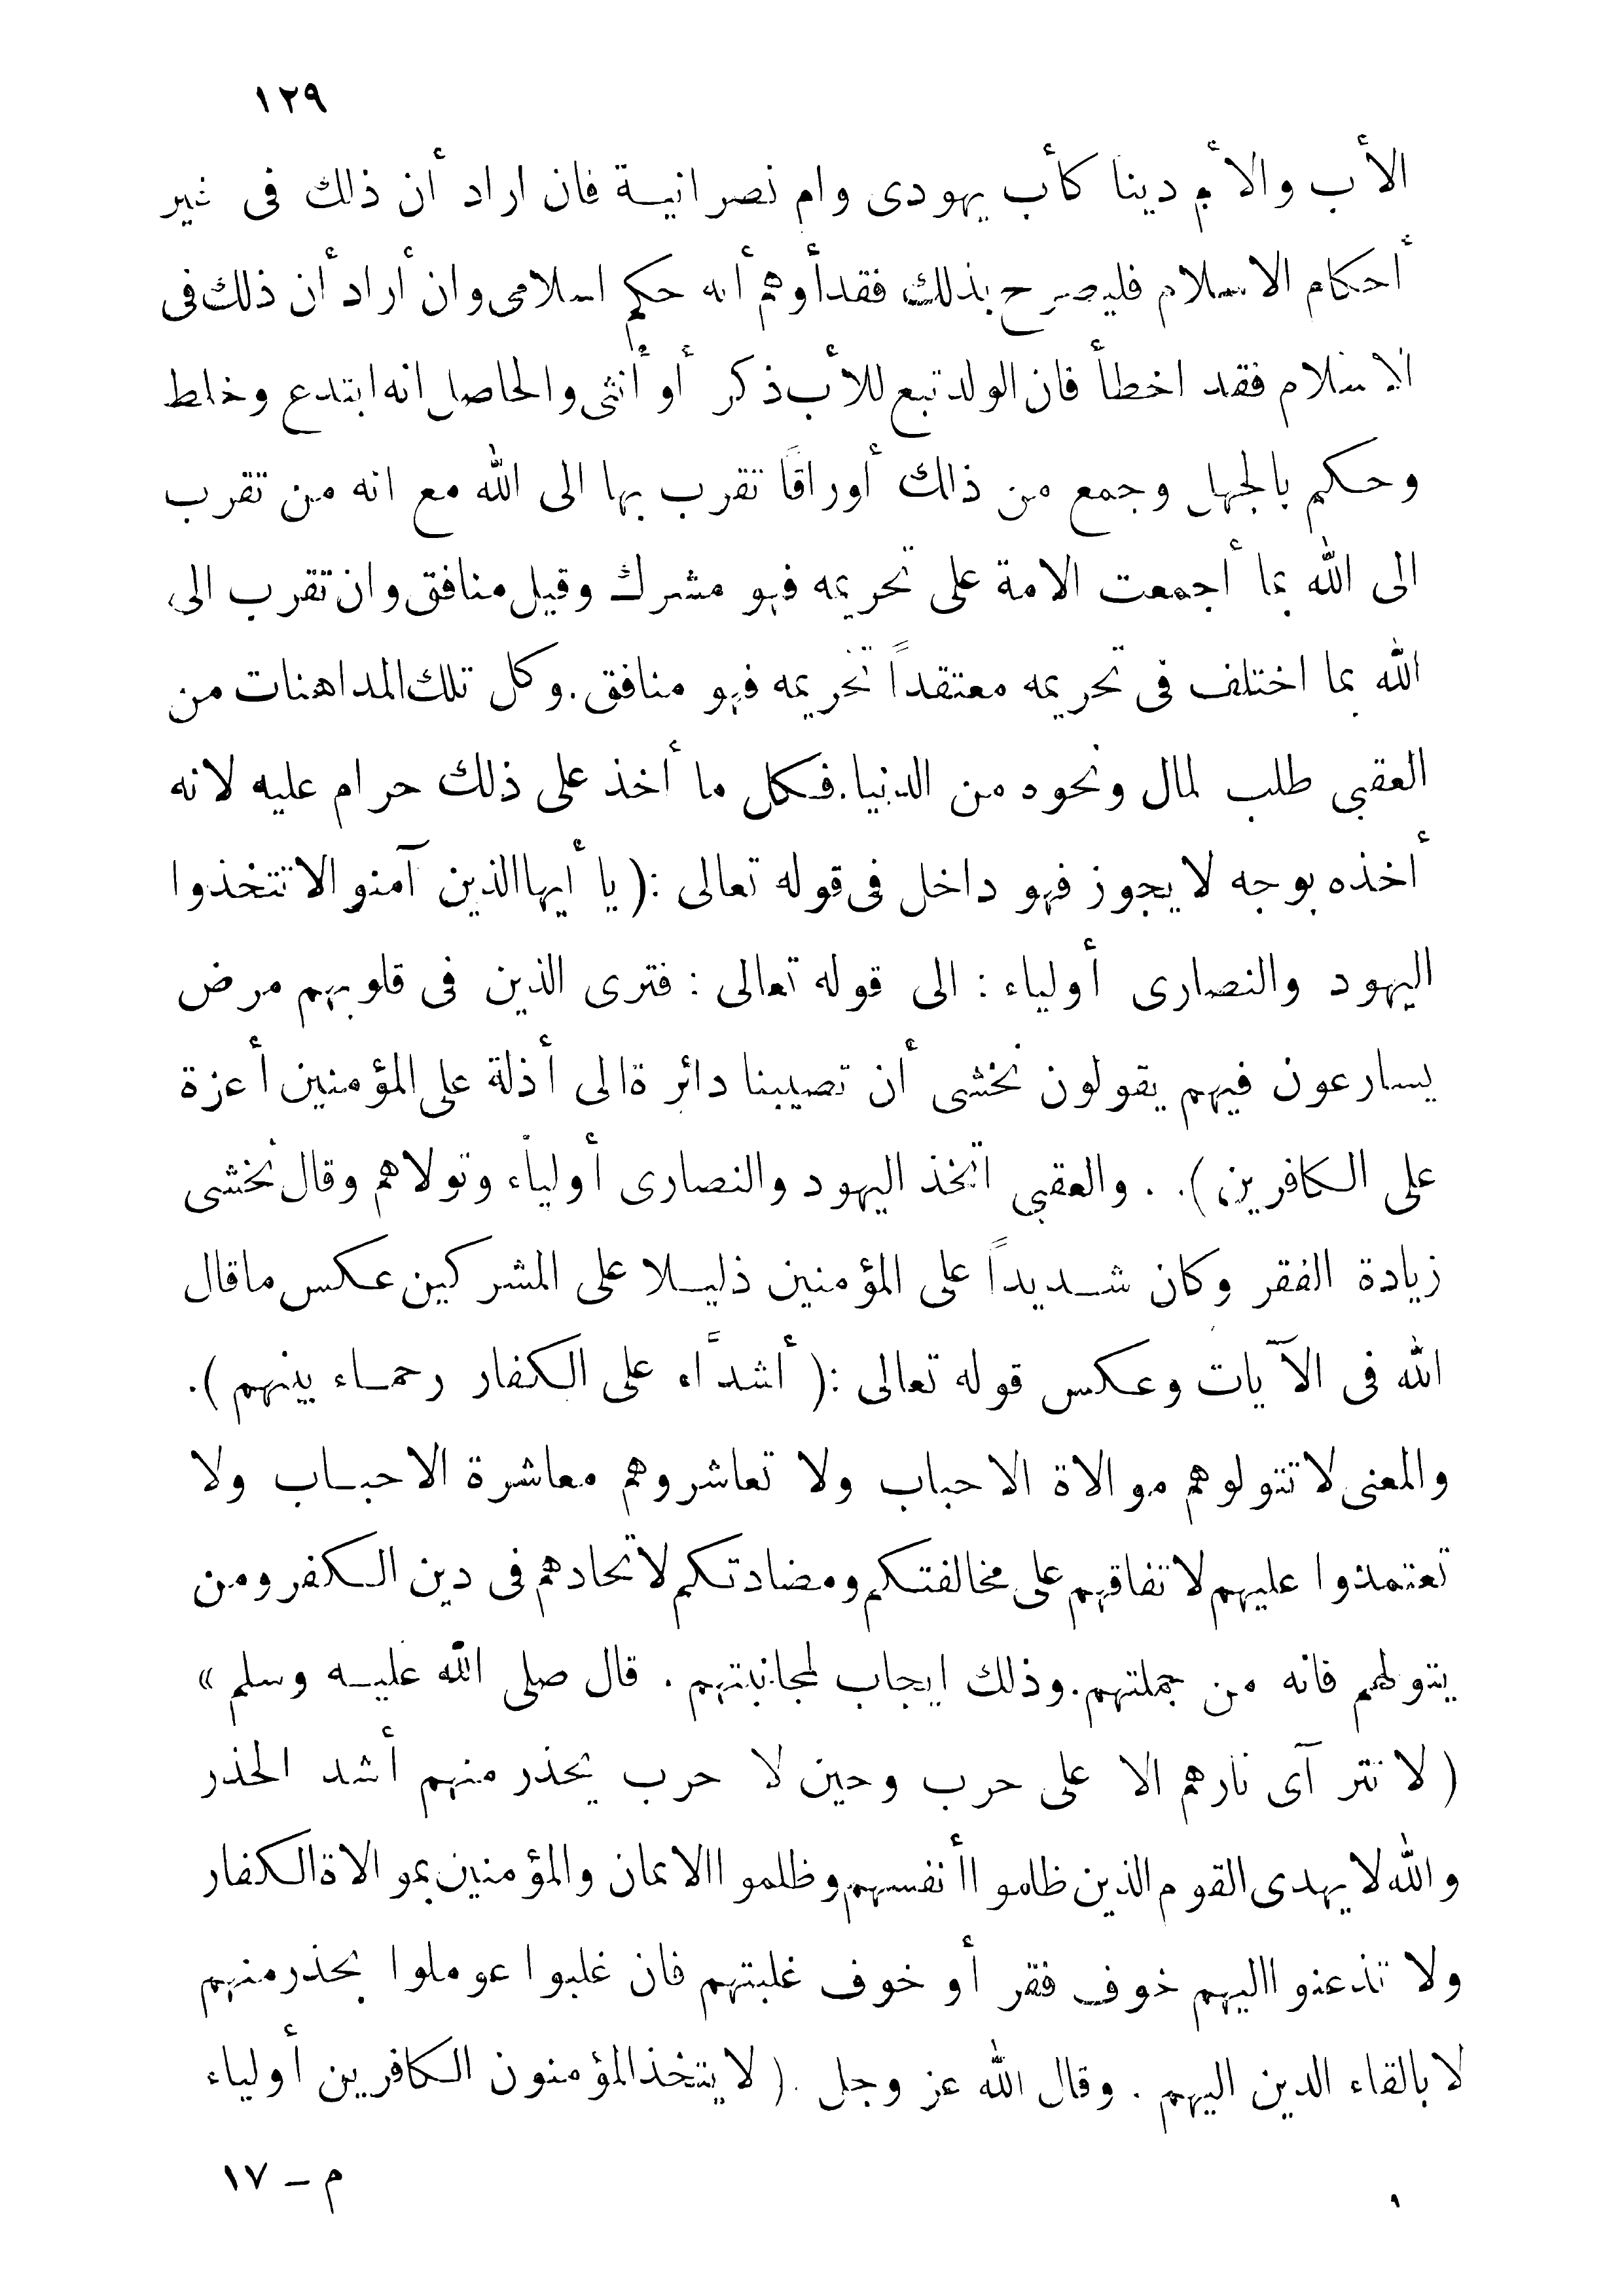 ١٢٩
الأب والأم دينا كأب يهودى وام نصرانية فان اراد أن ذلك فى غير
أحكام الاسلام فليصرح بذلك فقد أوهم أنه حكم اسلامى وان أراد أن ذلك فى
الاسلام فقد اخطأ فان الولد تبع للأب ذكر أو أنثى والحاصل انه ابتدع وخلط
وحكم بالجهل وجمع من ذلك أوراقًا تقرب بها الى الله مع انه من تقرب
الى الله بما أجمعت الامة على تحريمه فهو مشرك وقيل منافق وان تقرب الى
الله بما اختلف فى تحريمه معتقداً تحريمه فهو منافق. وكل تلك المداهنات من
العقبى طلب لمال ونحوه من الدنيا. فكل ما أخذ على ذلك حرام عليه لانه
أخذه بوجه لا يجوز فهو داخل فى قوله تعالى :( يا أيها الذين آمنوا لا تتخذوا
اليهود والنصارى أولياء : الى قوله تعالى : فترى الذين فى قلوبهم مرض
يسارعون فيهم يقولون نخشى أن تصيبنا دائرة الى أذلة على المؤمنين أعزة
على الكافرين ). . والعقبى اتخذ اليهود والنصارى أولياء وتولاهم وقال نخشى
زيادة الفقر وكان شديداً على المؤمنين ذليلا على المشركين عكس ما قال
الله فى الآيات وعكس قوله تعالى :( أشدَّاء على الكفار رحماء بينهم ).
والمعنى لا تتولوهم موالاة الاحباب ولا تعاشروهم معاشرة الاحباب ولا
تعتمدوا عليهم لاتفاقهم على مخالفتكم ومضادتكم لاتحادهم فى دين الكفر ومن
يتولهم فانه من جملتهم. وذلك ايجاب لمجانبتهم . قال صلى الله عليه وسلم »
( لا تتر آى نارهم الا على حرب وحين لا حرب يحذر منهم أشد الحذر
والله لا يهدى القوم الذين ظلموا أنفسهم وظلموا الايمان والمؤمنين بموالاة الكفار
ولا تذعنوا اليهم خوف فقر أو خوف غلبتهم فان غلبوا عوملوا بحذر منهم
لا بالقاء الدين اليهم . وقال الله عز وجل .( لا يتخذ المؤمنون الكافرين أولياء
م – ١٧
٩